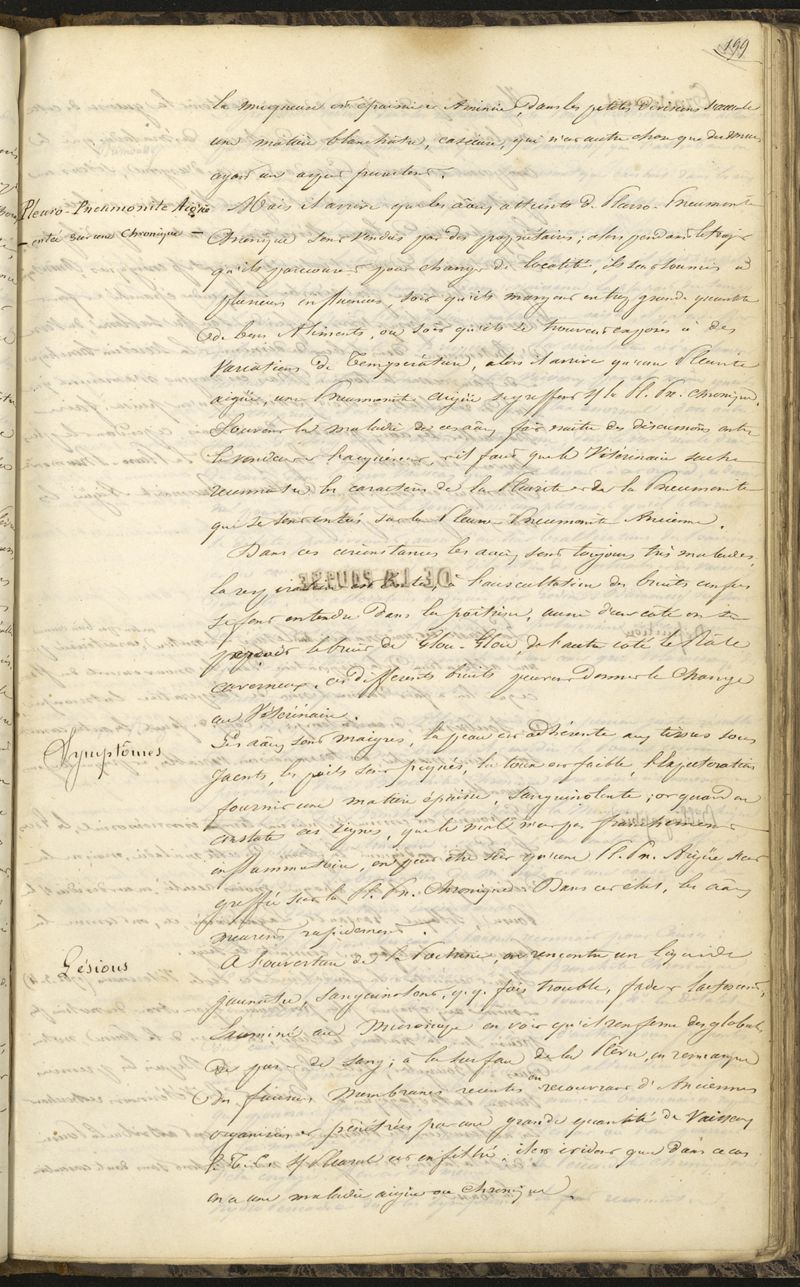 199
la muqueuse est épaissie & Amincie, dans les petites divisions s'accumule
une matière blanchâtre, caséeuse, qui n'est autre chose que du mucus
ayant un aspect purulent.
Pleuro-Pneumonite Aigüe
entée sur une Chronique =
Mais il arrive que les aaux atteints de Pleuro-Pneumonite
Chronique sont vendus par des propriétaires; alors pendant le trajet
qu'ils parcourent pour changer de localité, ils sont soumis à
plusieurs influences, soit qu'ils mangent en trop grande quantité
de bons Aliments, ou soit qu'ils se trouvent exposés à des
Variations de Température, alors il arrive qu'une Pleurite
aigüe, une Pneumonite Aigüe se greffent s/ la Pl. Pn. chronique.
Souvent la maladie de ces aaux fait naître des discussions entre
le vendeur & l'acquéreur, et il faut que le Vétérinaire sache
reconnaître les caractères de la Pleurite & de la Pneumonite
qui se sont entés sur la Pleuro-Pneumonite Ancienne.
Dans ces circonstances les aaux sont toujours très malades,
la respiration est, à l'auscultation des bruits confus
se font entendre dans la poitrine, aussi d'un côté on
le bruit de Glou-Glou, de l'autre côté le Râle
caverneux. ces différents bruits peuvent donner le Change
au Vétérinaire.
Symptômes
Les aaux sont maigres, la peau est adhérente aux tissus sous
jacents, les poils sont piqués, la toux est faible, l'expectoration
fournit une matière épaisse, sanguinolente; or quand on
constate ces signes, que le mal n'est pas franchement
inflammatoire, on peut être sûr qu'une Pl. Pn. Aigüe s'est
greffée sur la Pl. Pn. Chronique. Dans cet état, les aaux
meurent rapidement.
Lésions
A l'ouverture de la Poitrine, on rencontre un liquide
jaunâtre, sanguinolent, q.q. fois trouble, fade &
Examiné au Microscope on voit qu'il renferme des globules
de pus & de sang; à la surface de la Plèvre, on remarque
des fausses Membranes récentes en recouvrant d'Anciennes
organisées & pénétrées par une grande quantité de Vaisseaux
Le T. C. s/ Pleural est infiltré; il est évident que dans ce cas
on a une maladie aigüe ou chronique.